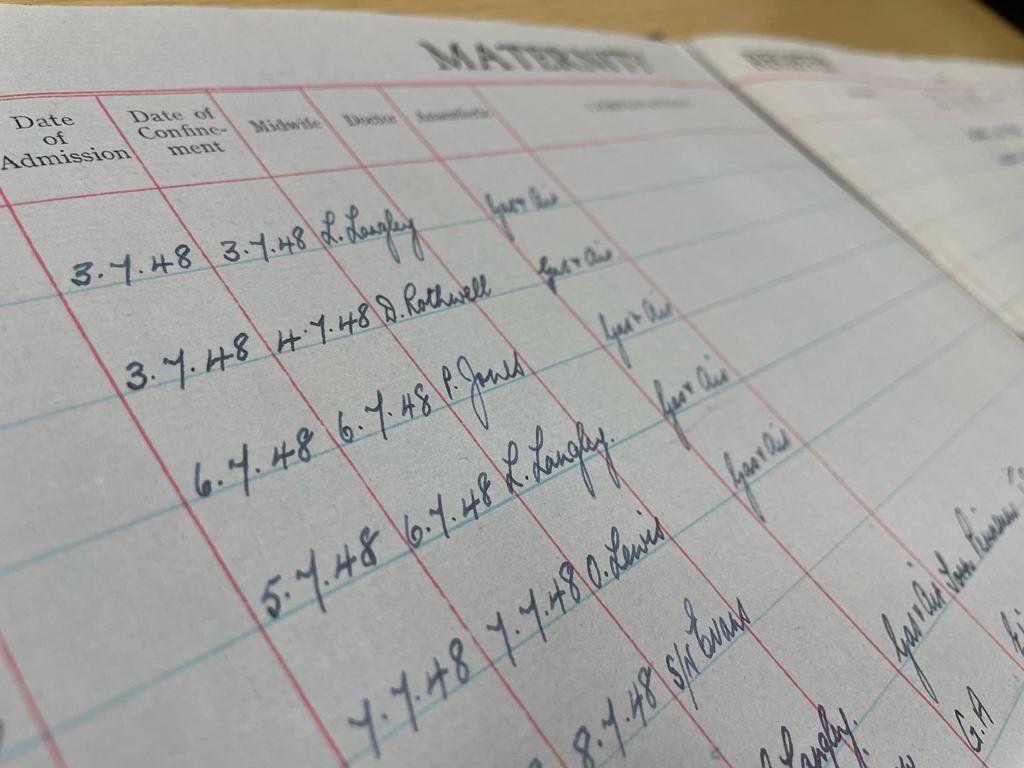 MATERNITY REGISTER
Date of Admission Date of Confine-ment Midwife Doctor Anaesthetic
3.7.48 3.7.48 L. Langley Gas + Air
3.7.48 4.7.48 D. Rothwell Gas + Air.
6.7.48 6.7.48 P. Jones Gas + Air
5.7.48 6.7.48 L. Langley. Gas + Air
7.7.48 7.7.48 O. Lewis Gas + Air
8.7.48 S/N Evans Gas + Air
Langley. G.A